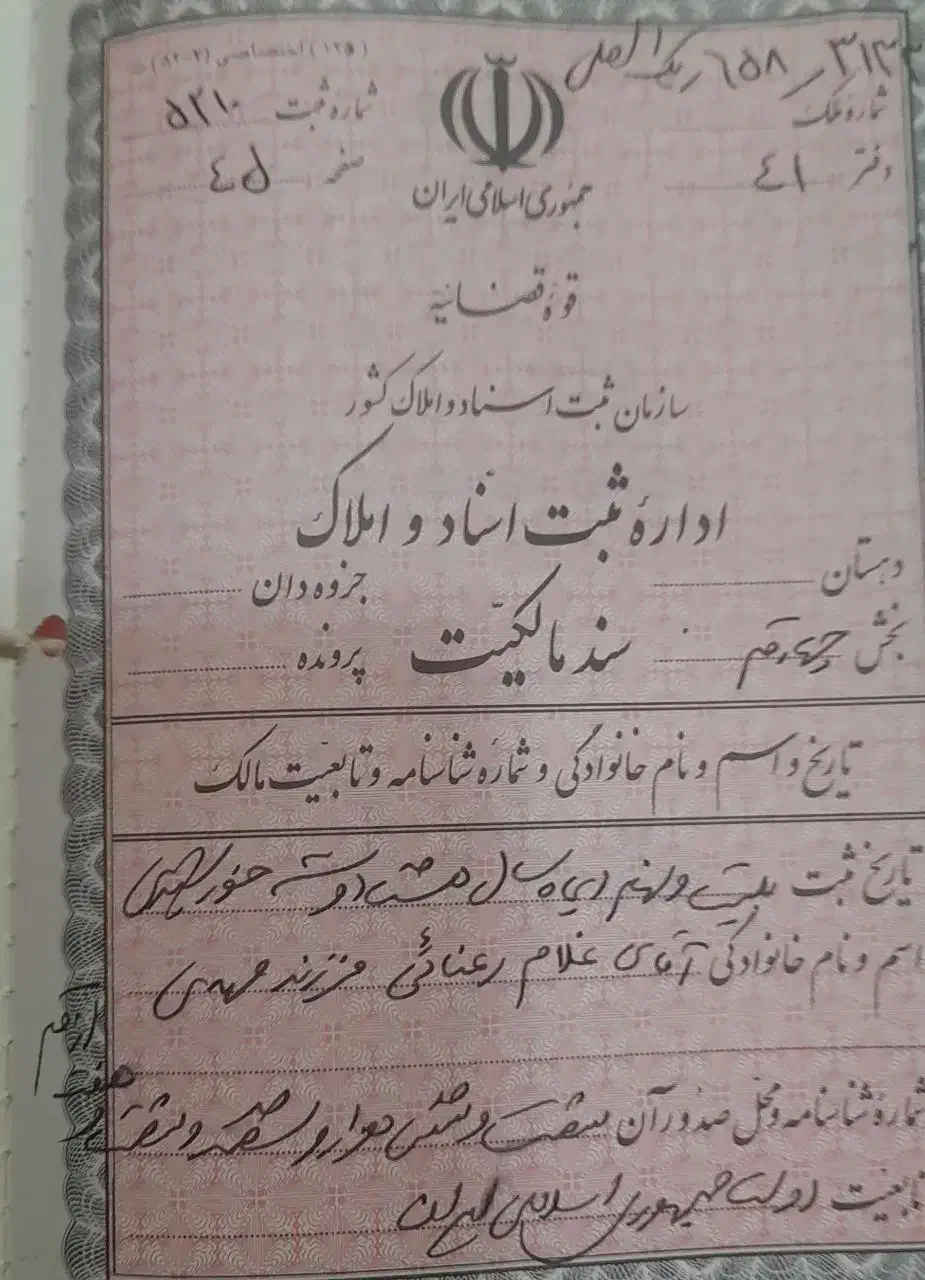 (۱۲۵) اختصاصی
شمارهٔ ملک ۳۱۲۳ / ۶۵۸
شمارهٔ ثبت ۵۲۱۰
دفتر ٤١
صفحه
جمهوری اسلامی ایران
قوهٔ قضائیه
سازمان ثبت اسناد و املاک کشور
ادارهٔ ثبت اسناد و املاک
دهستان
جزوه دان
بخش چهار قم
سند مالکیّت
پرونده
تاریخ و اسم و نام خانوادگی و شمارهٔ شناسنامه و تابعیّت مالک
تاریخ ثبت بیست و نهم دی ماه سال هشتاد و سه
اسم و نام خانوادگی آقای غلام رعنائی فرزند مهدی
شمارهٔ شناسنامه و محل صدور آن هزار و سیصد و
تابعیت دولت جمهوری اسلامی ایران